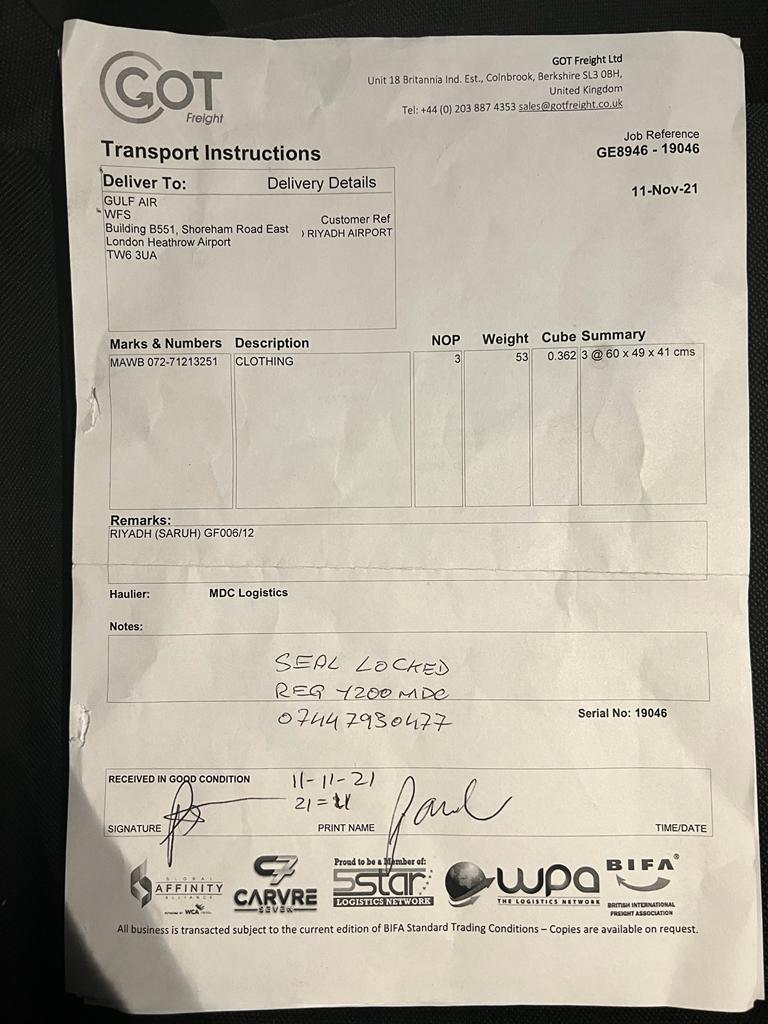 GOT
Freight
GOT Freight Ltd
Unit 18 Britannia Ind. Est., Colnbrook, Berkshire SL3 0BH,
United Kingdom
Tel: +44 (0) 203 887 4353 sales@gotfreight.co.uk
Transport Instructions
Job Reference
GE8946 - 19046
11-Nov-21
Deliver To: Delivery Details
GULF AIR
WFS
Building B551, Shoreham Road East
London Heathrow Airport
TW6 3UA
Customer Ref
) RIYADH AIRPORT
Marks & Numbers Description NOP Weight Cube Summary
MAWB 072-71213251 CLOTHING 3 53 0.362 3 @ 60 x 49 x 41 cms
Remarks:
RIYADH (SARUH) GF006/12
Haulier: MDC Logistics
Notes:
SEAL LOCKED
REG Y200 MDC
07447930477
Serial No: 19046
RECEIVED IN GOOD CONDITION 11-11-21
21=
SIGNATURE PRINT NAME TIME/DATE
GLOBAL
AFFINITY
ALLIANCE
WCA
C7
CARVRE
SEVEN
Proud to be a Member of:
5star
LOGISTICS NETWORK
wpa
THE LOGISTICS NETWORK
BIFA®
BRITISH INTERNATIONAL
FREIGHT ASSOCIATION
All business is transacted subject to the current edition of BIFA Standard Trading Conditions – Copies are available on request.